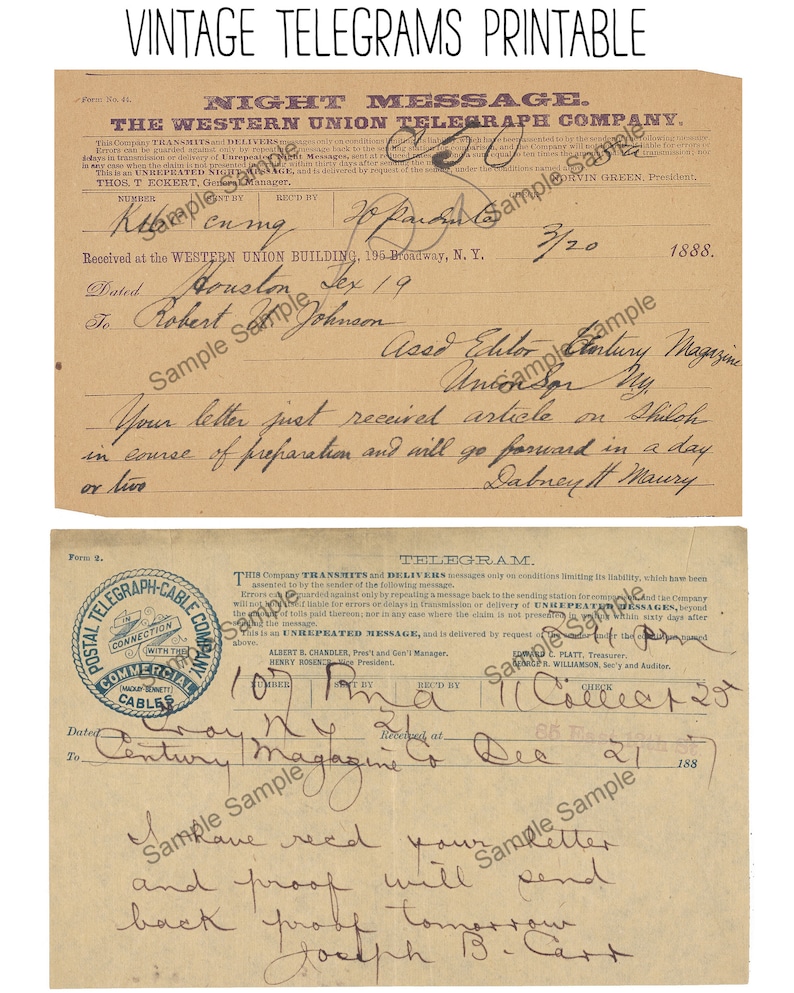 VINTAGE TELEGRAMS PRINTABLE
Form No. 44.
NIGHT MESSAGE.
THE WESTERN UNION TELEGRAPH COMPANY.
This Company TRANSMITS and DELIVERS messages only on conditions limiting its liability, which have been assented to by the sender of the following message.
Errors can be guarded against only by repeating a message back to the sending station for comparison, and the Company will not hold itself liable for errors or
delays in transmission or delivery of Unrepeated Night Messages, sent at reduced rates, beyond a sum equal to ten times the amount paid for transmission; nor
in any case where the claim is not presented in writing within thirty days after sending the message.
This is an UNREPEATED NIGHT MESSAGE, and is delivered by request of the sender, under the conditions named above.
THOS. T ECKERT, General Manager. NORVIN GREEN, President.
NUMBER SENT BY REC'D BY CHECK
Received at the WESTERN UNION BUILDING, 195 Broadway, N. Y. 3/20 1888.
Dated Houston Tex 19
To Robert W Johnson
Assd Editor Century Magazine
Union Sqr Ny
Your letter just received article on Shiloh
in course of preparation and will go forward in a day
or two Dabney H Maury
Form 2.
TELEGRAM.
POSTAL TELEGRAPH-CABLE COMPANY
IN
CONNECTION
WITH THE
COMMERCIAL
(MACKAY-BENNETT)
CABLES
THIS Company TRANSMITS and DELIVERS messages only on conditions limiting its liability, which have been
assented to by the sender of the following message.
Errors can be guarded against only by repeating a message back to the sending station for comparison, and the Company
will not hold itself liable for errors or delays in transmission or delivery of UNREPEATED MESSAGES, beyond
the amount of tolls paid thereon; nor in any case where the claim is not presented in writing within sixty days after
sending the message.
This is an UNREPEATED MESSAGE, and is delivered by request of the sender under the conditions named
above.
ALBERT B. CHANDLER, Pres't and Gen'l Manager. EDWARD C. PLATT, Treasurer.
HENRY ROSENER, Vice President. GEORGE R. WILLIAMSON, Sec'y and Auditor.
NUMBER SENT BY REC'D BY CHECK
107 11 Collect 25
Dated Troy N Y 21 Received at 65 East 12th St.
To Century Magazine Co Dec 21 1887
I have recd your letter
and proof will send
back proof tomorrow
Joseph B. Carr
Sample Sample
Sample Sample
Sample Sample
Sample Sample
Sample Sample
Sample Sample
Sample Sample
Sample Sample